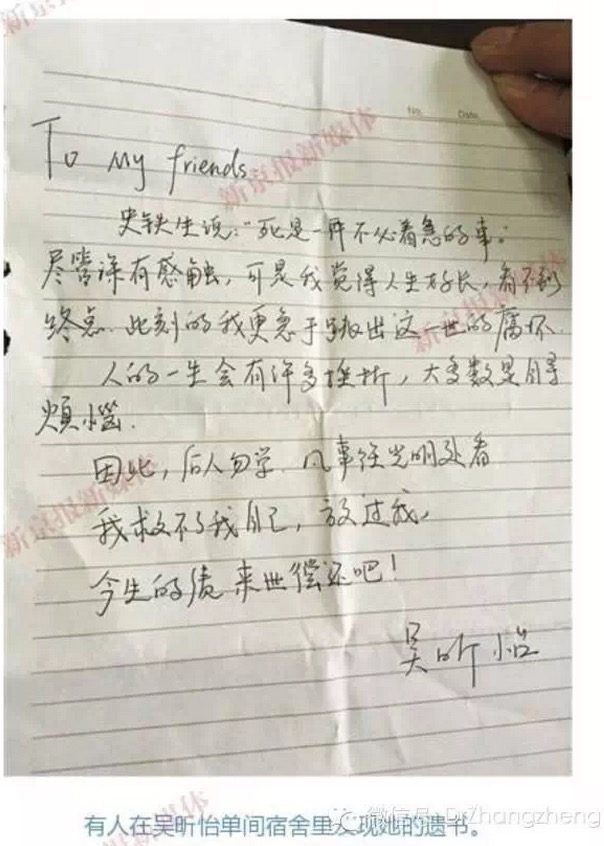 No. Date.
To My friends
史铁生说："死是一件不必着急的事。
尽管深有感触，可是我觉得人生好长，看不到
终点.此刻的我更急于跳出这一世的腐坏.
人的一生会有许多挫折，大多数是自寻
烦恼.
因此，后人勿学.凡事往光明处看
我救不了我自己，放过我，
今生的债来世偿还吧！
吴昕怡
新京报新媒体
新京报新媒体
新京报新媒体
微信号: DrZhangzheng
有人在吴昕怡单间宿舍里发现她的遗书。